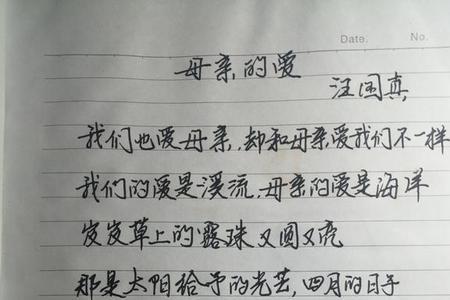 Date.    No.
母亲的爱
汪国真
我们也爱母亲,却和母亲爱我们不一样
我们的爱是溪流,母亲的爱是海洋
岌岌草上的露珠又圆又亮
那是太阳给予的光芒,四月的日子